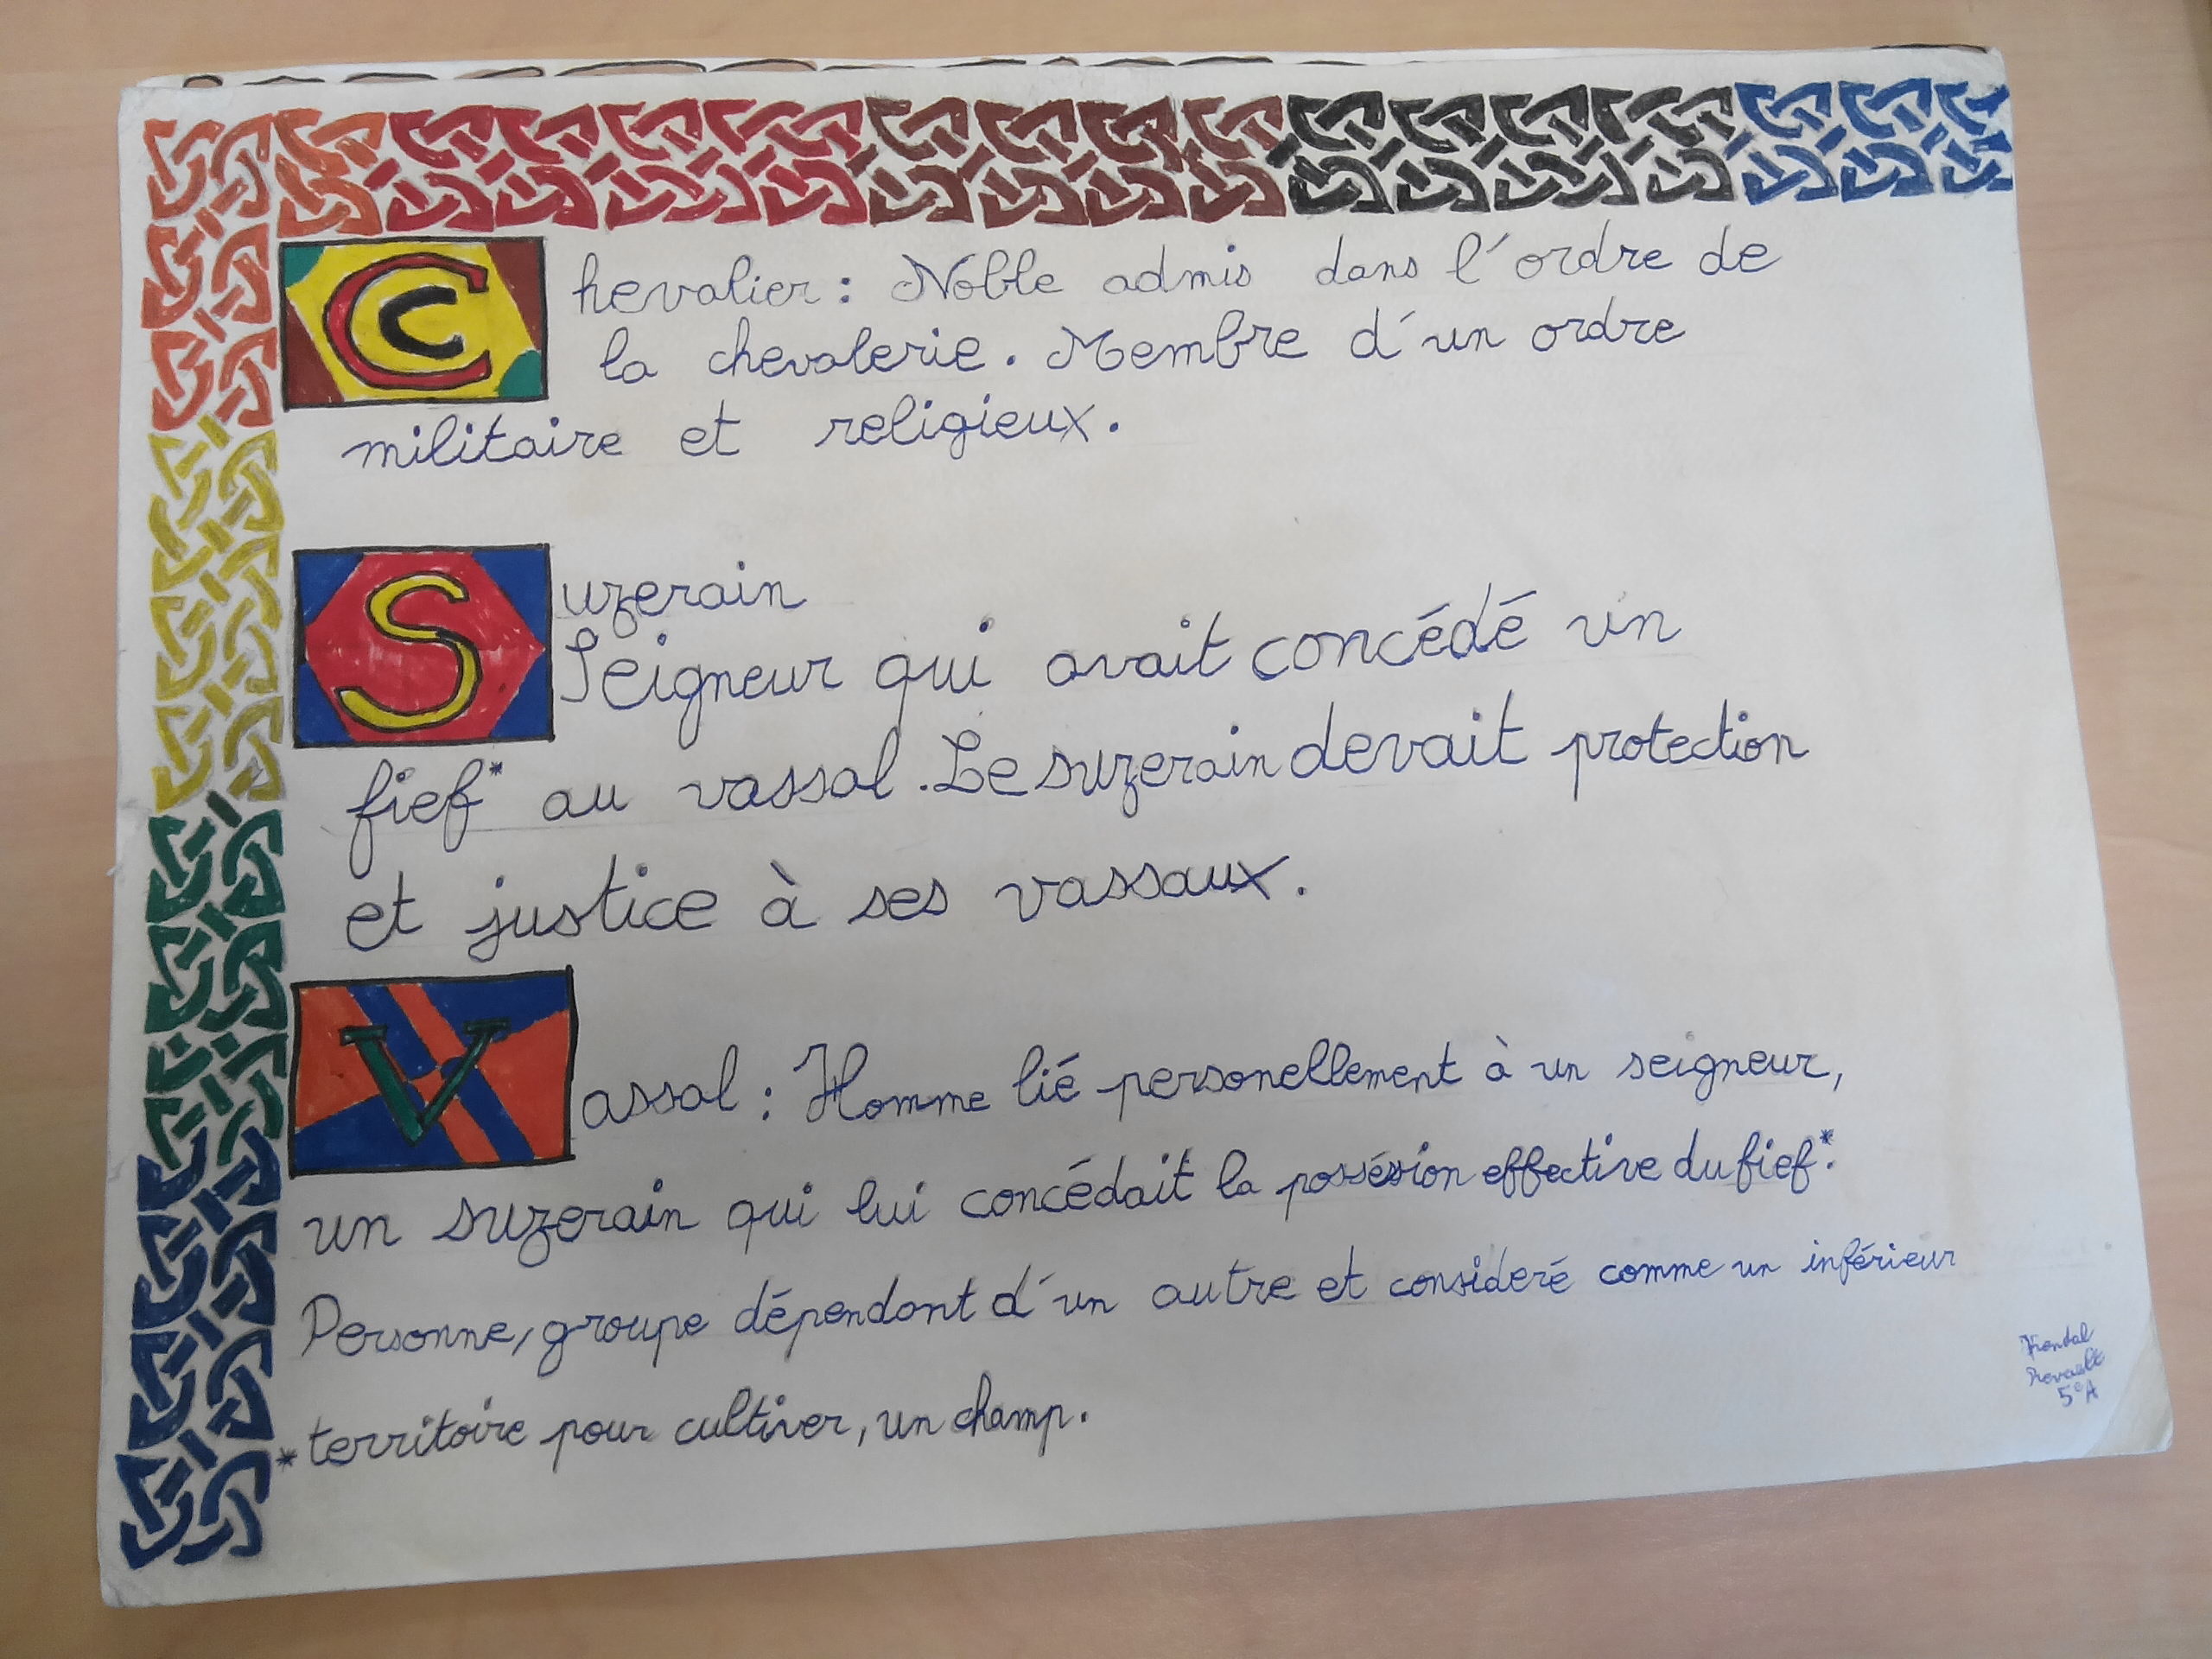 Chevalier : Noble admis dans l'ordre de
la chevalerie. Membre d'un ordre
militaire et religieux.
Suzerain
Seigneur qui avait concédé un
fief* au vassal. Le suzerain devait protection
et justice à ses vassaux.
Vassal : Homme lié personellement à un seigneur,
un suzerain qui lui concédait la possésion effective du fief*.
Personne, groupe dépendant d'un autre et consideré comme un inférieur
*territoire pour cultiver, un champ.
5ºA